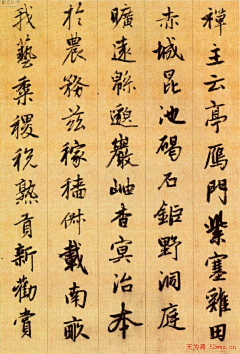 禪主云亭鴈門紫塞雞田
赤城昆池碣石鉅野洞庭
曠遠緜邈巖岫杳冥治本
於農務茲稼穡俶載南畝
我藝黍稷稅熟貢新勸賞